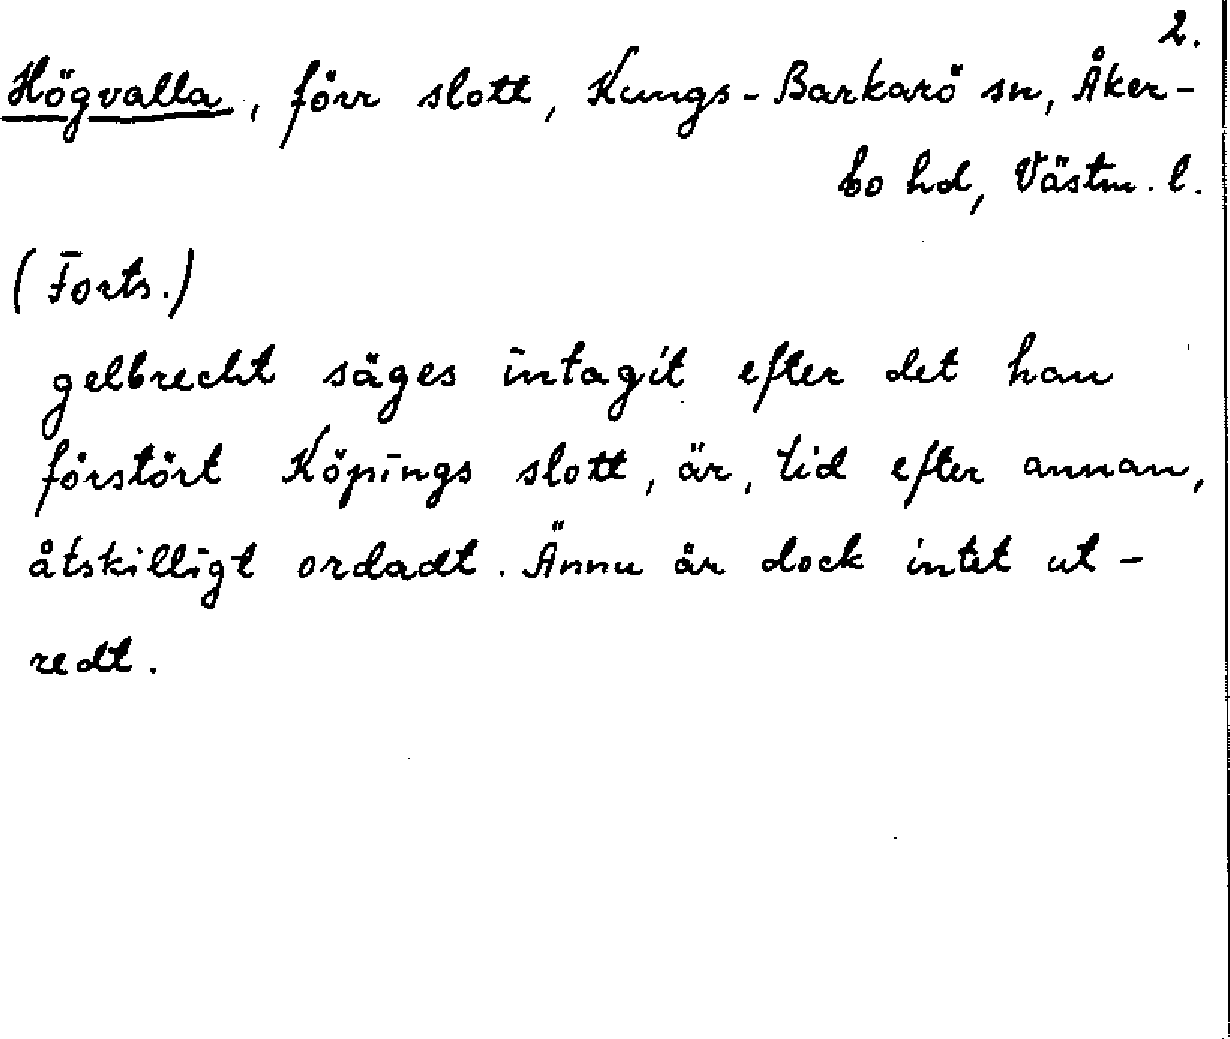 2.
Högvalla, förr slott, Kungs-Barkarö sn, Åker-
bo hd, Västm. l.
(Forts.)
gelbrecht säges intagit efter det han
förstört Köpings slott, är, tid efter annan,
åtskilligt ordadt. Ännu är dock intet ut-
redt.